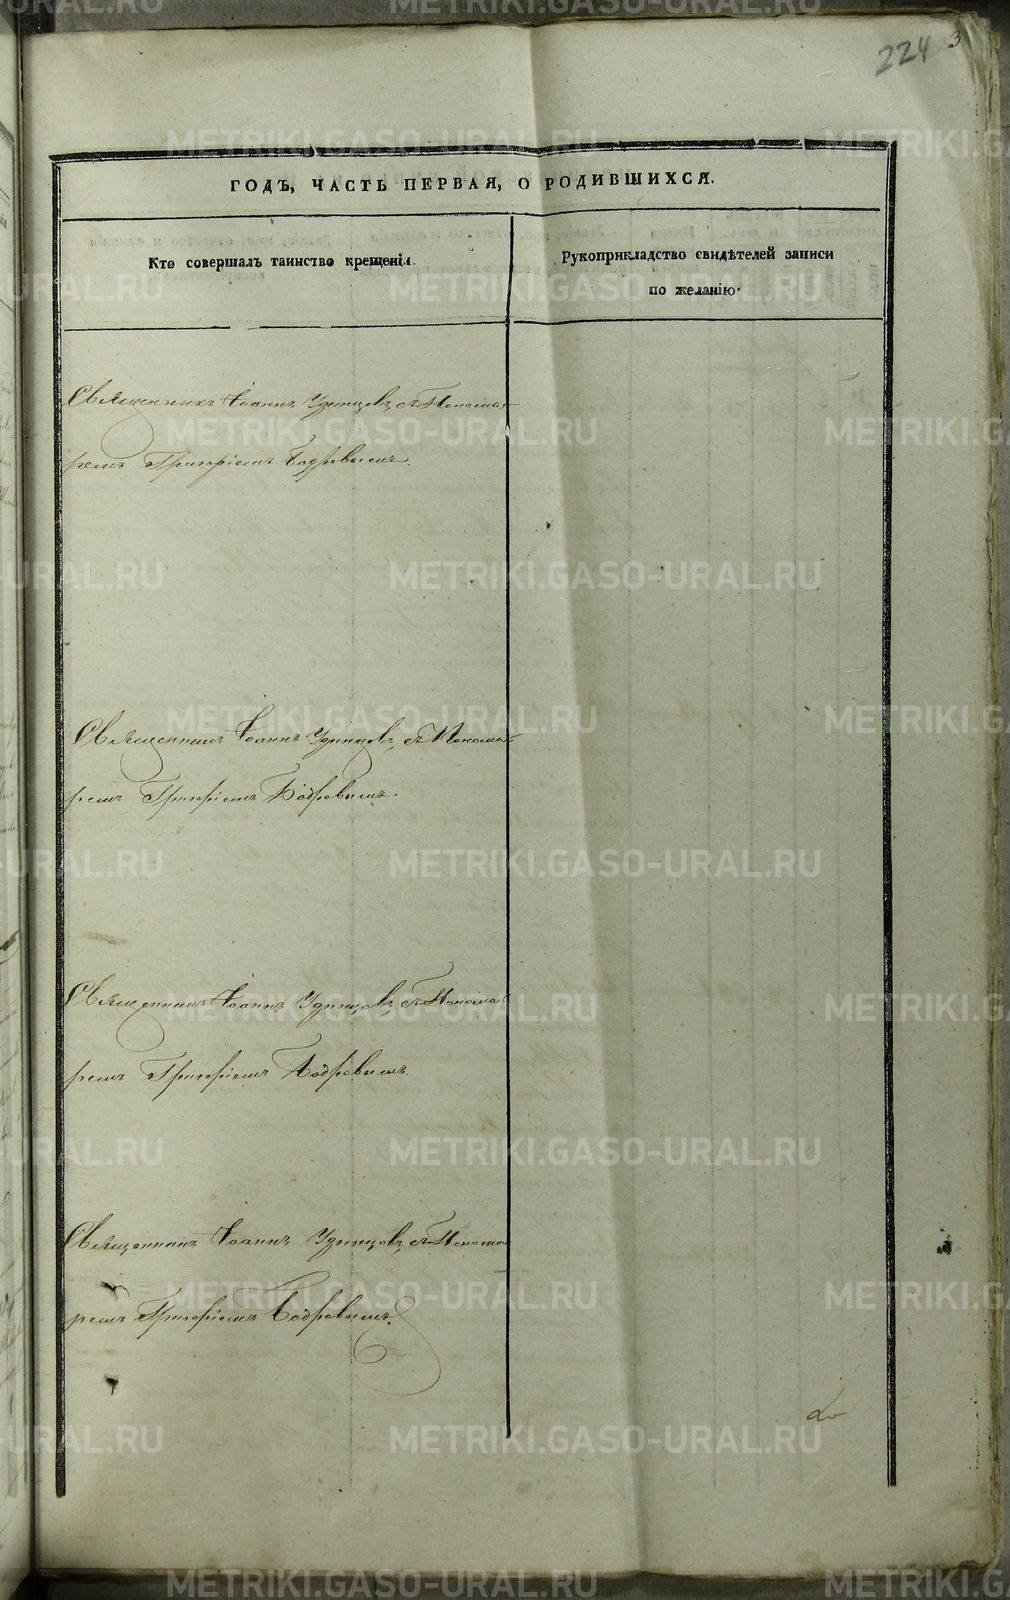 224
3
ГОДЪ, ЧАСТЬ ПЕРВАЯ, О РОДИВШИХСЯ.
Кто совершалъ таинство крещенія.
Рукоприкладство свидѣтелей записи
по желанію.
Священникъ Іоаннъ Удинцовъ съ Понома-
ремъ Григоріемъ Бодровымъ.
Священникъ Іоаннъ Удинцовъ съ Понома-
ремъ Григоріемъ Бодровымъ.
Священникъ Іоаннъ Удинцовъ съ Понома-
ремъ Григоріемъ Бодровымъ.
Священникъ Іоаннъ Удинцовъ съ Понома-
ремъ Григоріемъ Бодровымъ.
METRIKI.GASO-URAL.RU